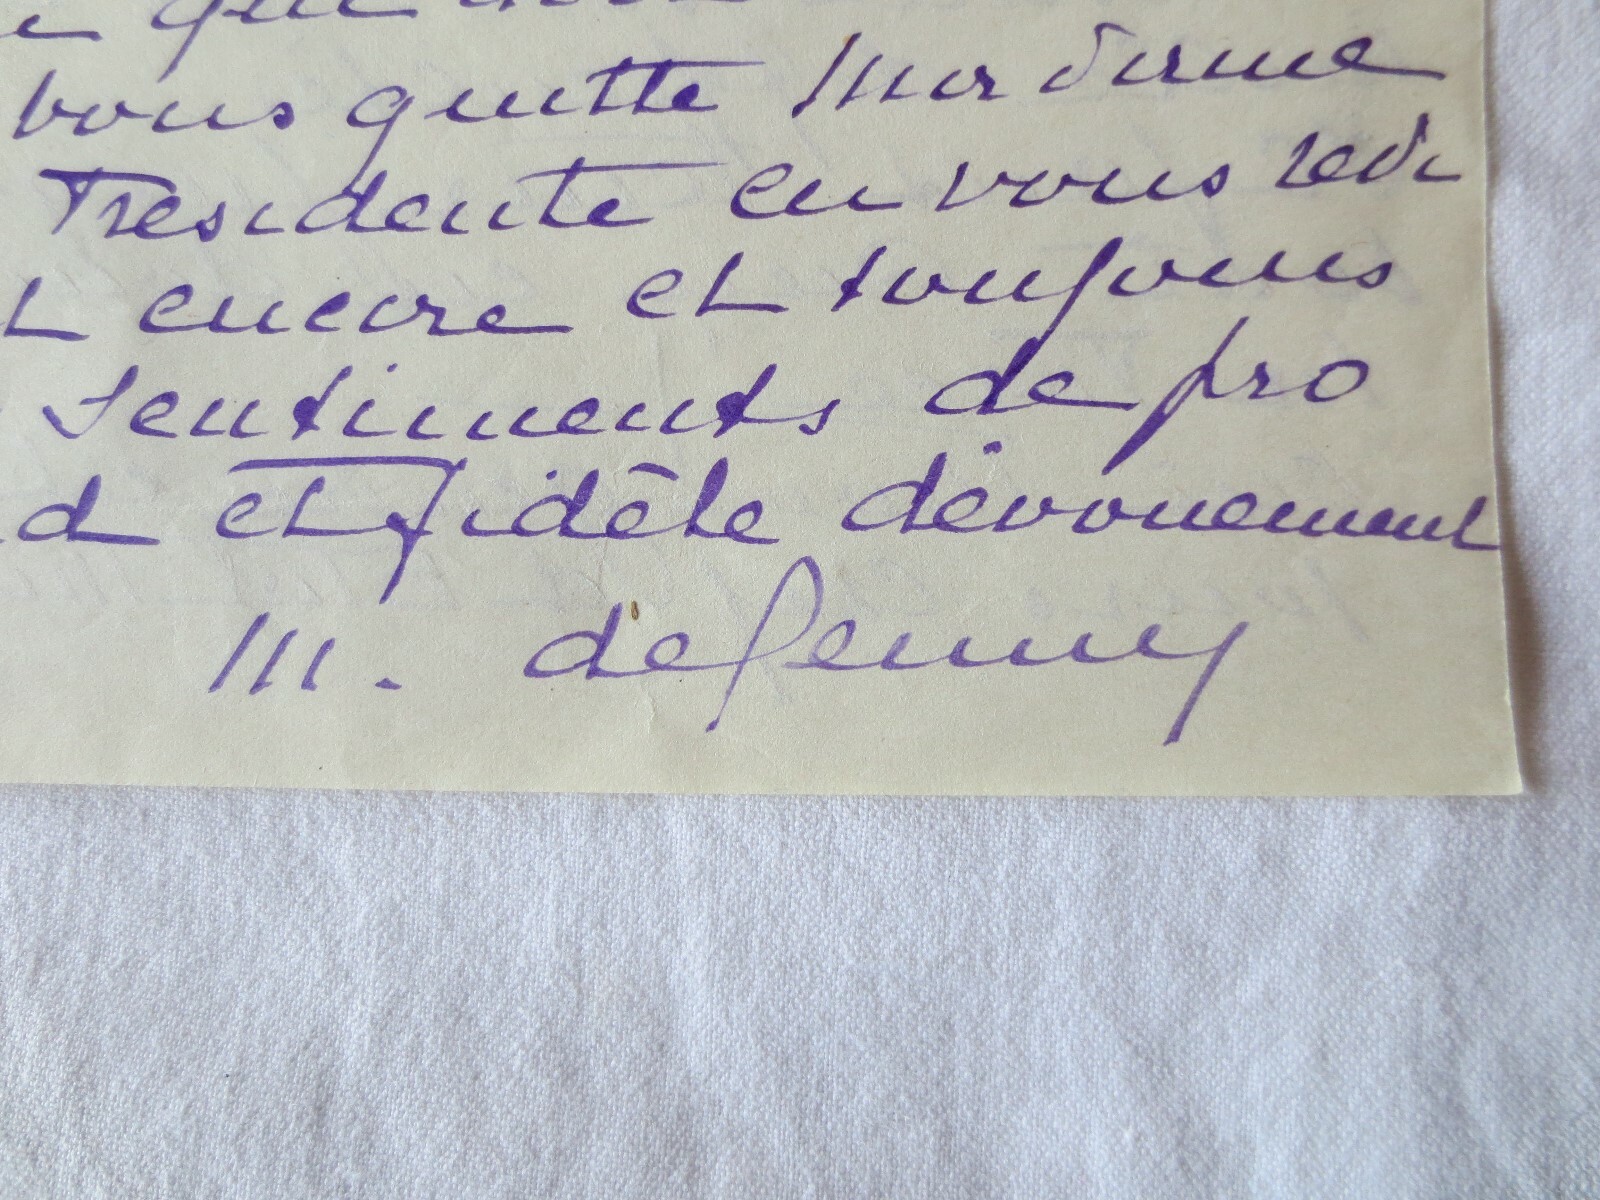 e que
vous quitte Madame
Présidente en vous redi
t encore et toujours
sentiments de pro
d et fidèle dévouement
M. de